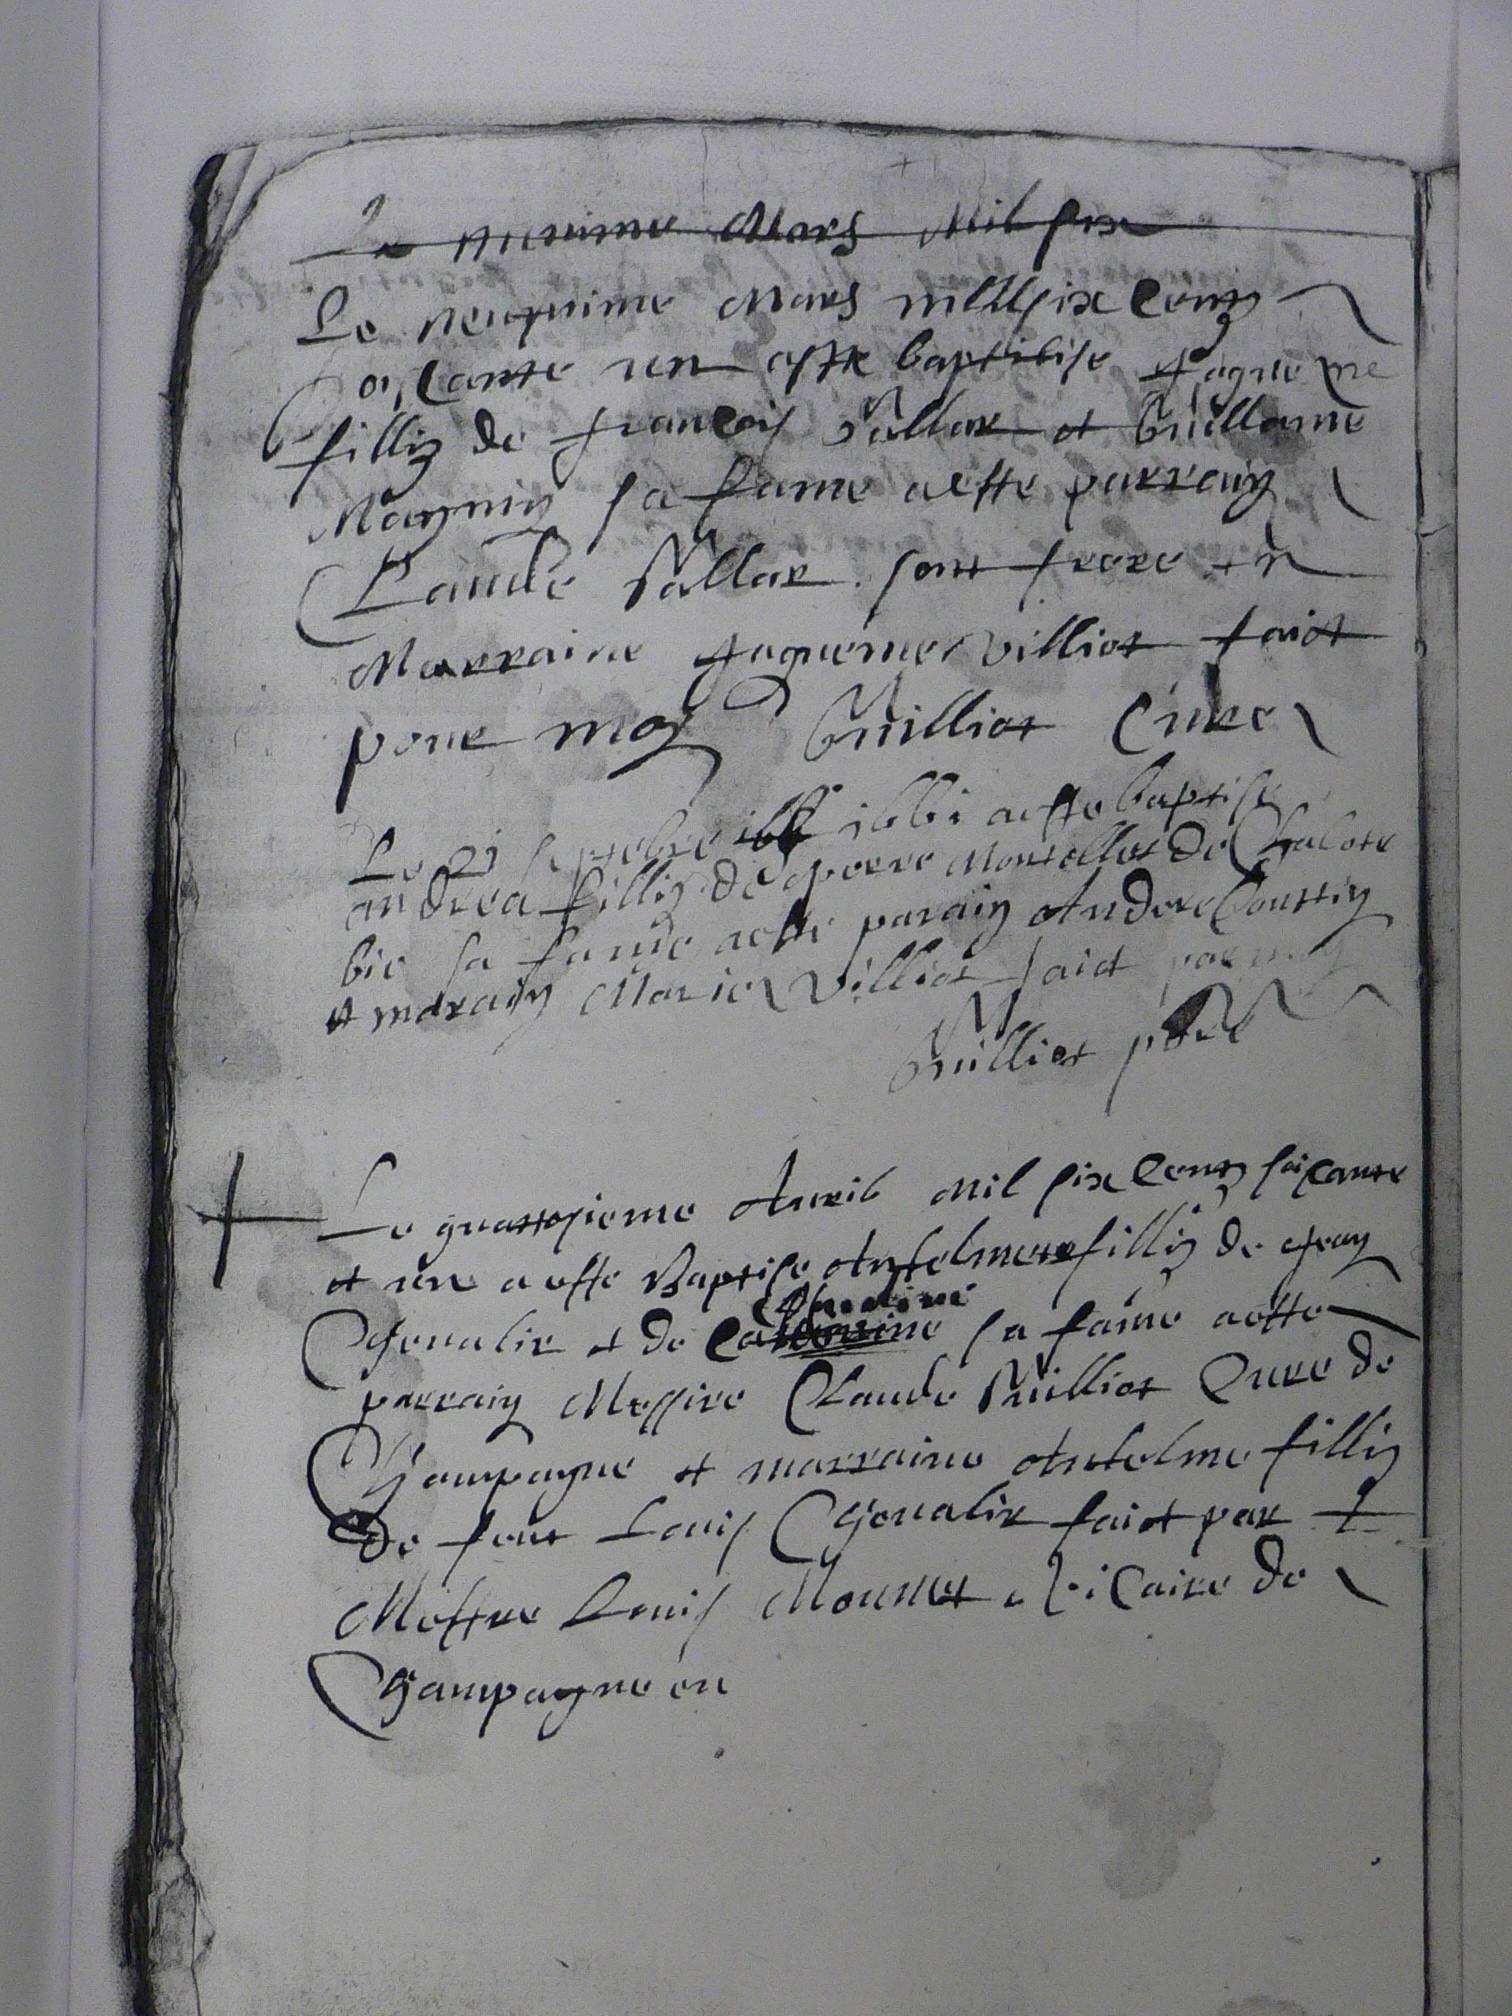 Le Mars Mil six
Le neufvime Mars mille six Centz
soiçante un este baptibise Jaqueme
filliz de françois Vullar et Guillame
Magnin sa fame aeste parrain
Claude Vullar sont frere et
Marraine Jaqueme Villiot faict
pour moy Guilliot Cure
Le 21 septebre 1661 aeste baptise
andrea filliz de pierre Montellet de
bie sa fame aeste parain Andere
et marain Marie Villiot faict par moy
Guilliot
Le quattosieme Avril Mil six Centz soiçante
et une aeste Baptise Antelmete filliz de Jean
Chevalir et de Claudine sa fame aeste
parrain Messire Claude Vuilliot Cure de
Champagne et marraine Antelme filliz
de feut Louis Chevalir faict par
Messre Louis Monnet Vicaire de
Champagne en